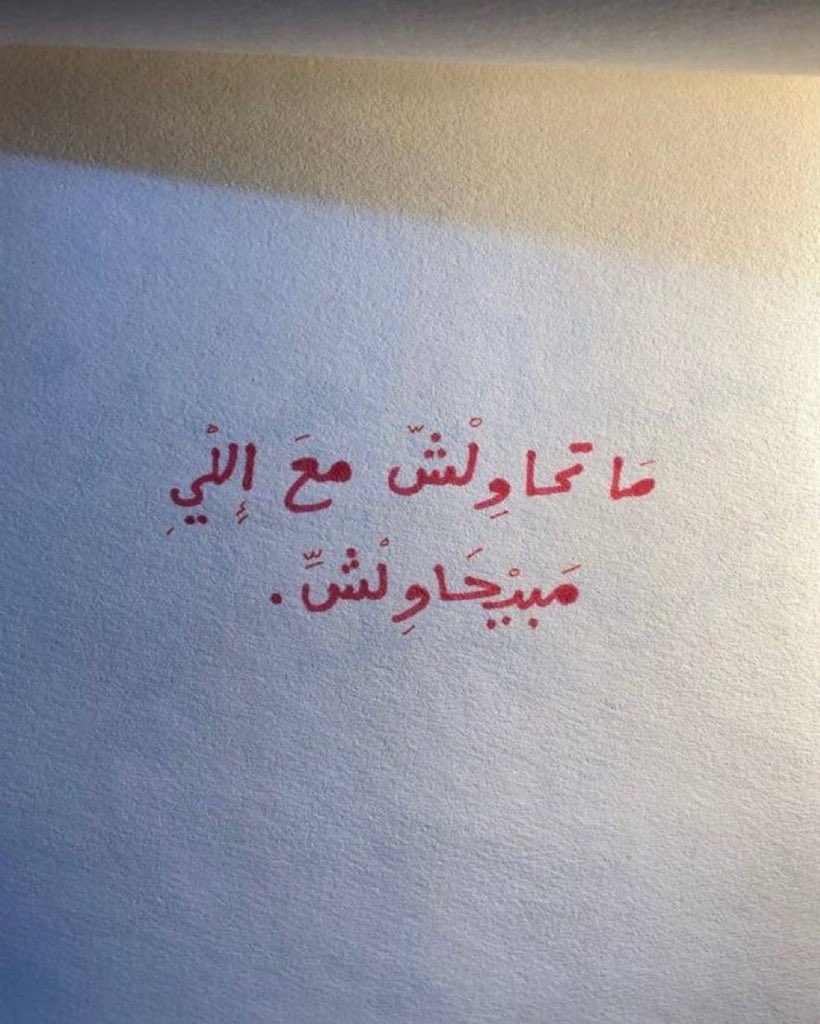 مَا تحاوِلْشّ معَ إللْي
مَبيْحَاوِلْشِّ.